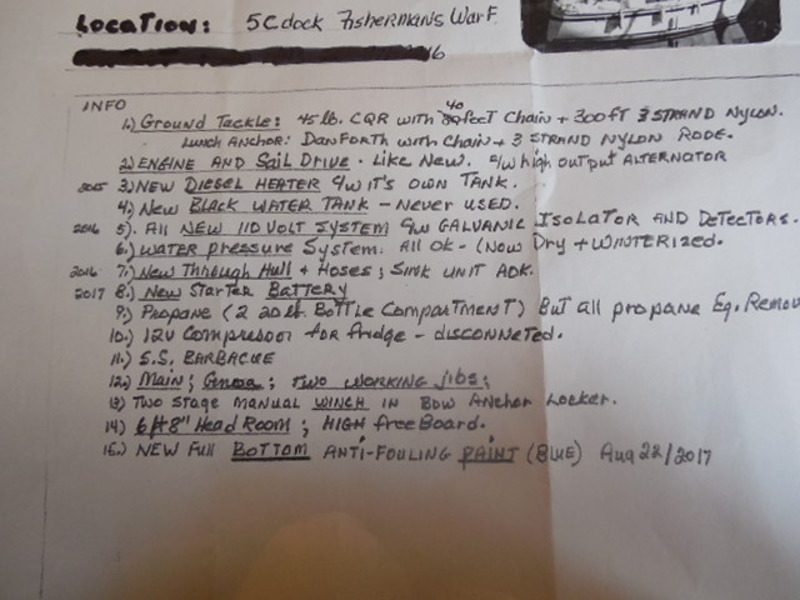 LOCATION: 5C dock Fisherman's Warf
6
INFO
1.) Ground Tackle: 45 lb. CQR with 40 feet Chain + 300 ft 3 STRAND NYLON.
LUNCH ANCHOR: DANFORTH with Chain + 3 STRAND NYLON RODE.
2.) ENGINE AND SAIL DRIVE. Like New. c/w high output ALTERNATOR
2015 3.) NEW DIESEL HEATER c/w IT'S OWN TANK.
4.) New BLACK WATER TANK - Never USED.
2016 5). All NEW 110 VOLT SYSTEM c/w GALVANIC ISOLATOR AND DETECTORS.
6.) WATER pressure System. All OK - (NOW Dry + WINTERIZED.
2016 7.) New Through Hull + Hoses ; SINK UNIT AOK.
2017 8.) New STARTER BATTERY
9.) PROPANE (2 20 lb. BOTTLE COMPARTMENT) But all propane Eq. Remov
10.) 12V COMPRESSOR for fridge - DISCONNETED.
11.) S.S. BARBACUE
12.) MAIN ; Genoa ; TWO WORKING jibs ;
13) TWO STAGE MANUAL WINCH IN BOW ANCHOR LOCKER.
14) 6 ft 8" Head Room ; HIGH freeBoard.
15.) NEW Full BOTTOM ANTI-FOULING PAINT (BLUE) Aug 22/2017